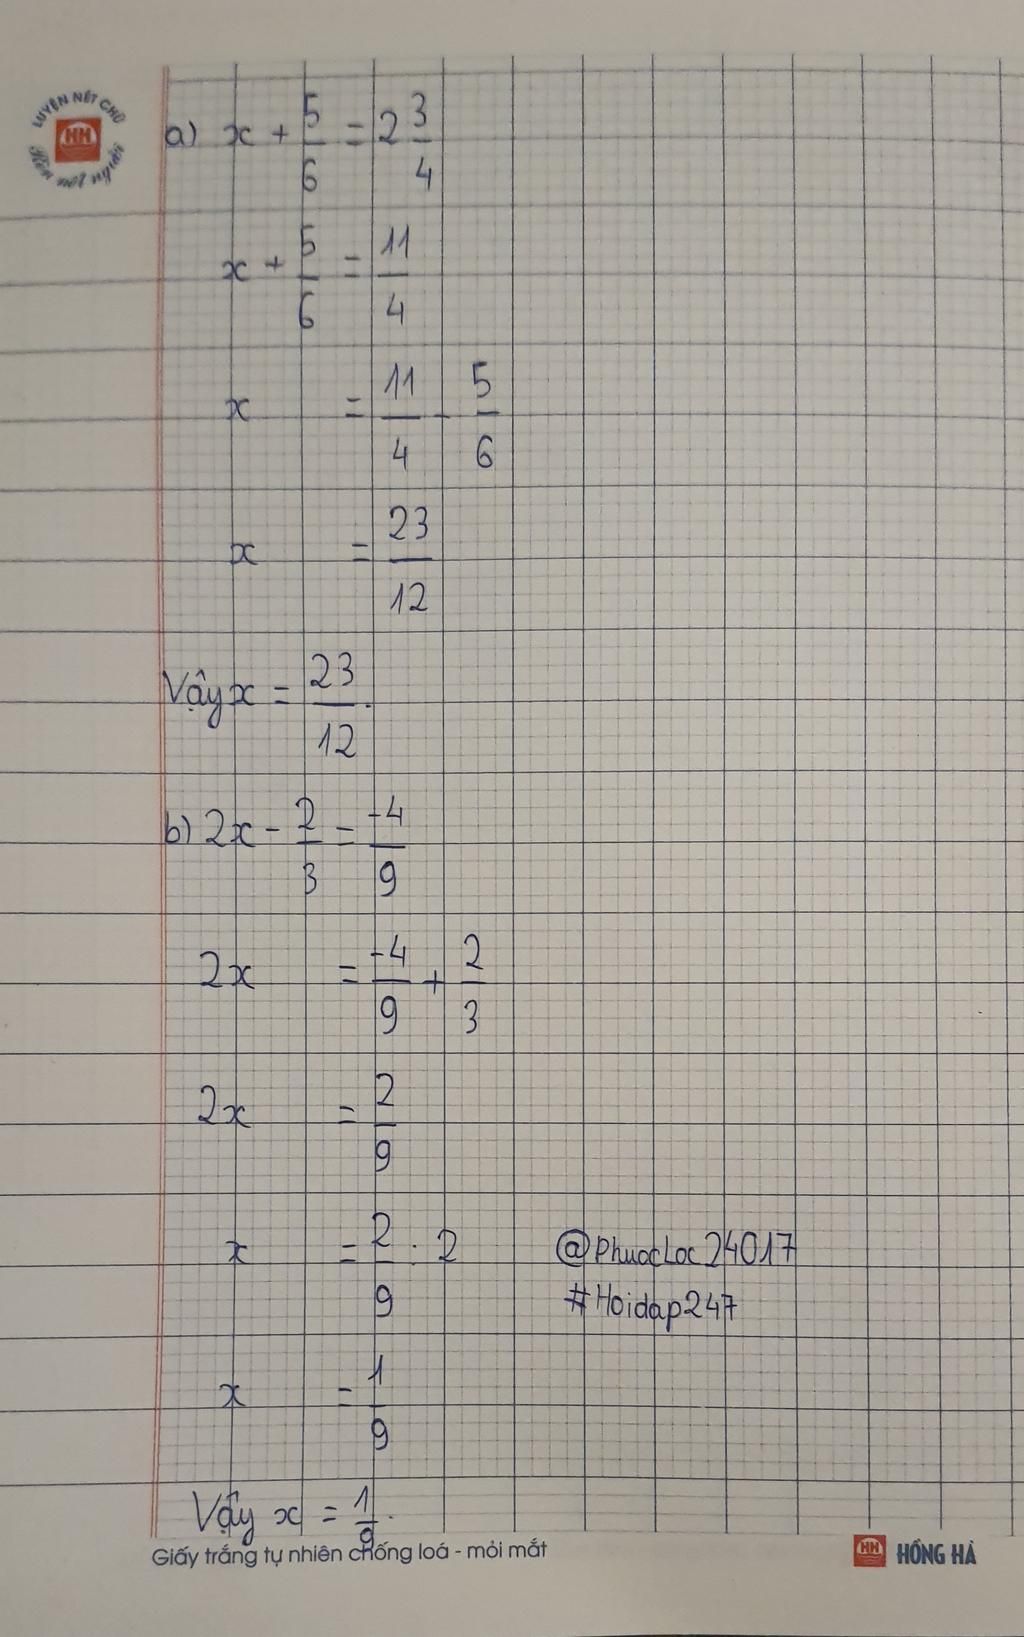 LUYỆN NÉT CHỮ
HH
Rèn nết người
a) x + 5/6 = 2 3/4
x + 5/6 = 11/4
x = 11/4 - 5/6
x = 23/12
Vậy x = 23/12.
b) 2x - 2/3 = -4/9
2x = -4/9 + 2/3
2x = 2/9
x = 2/9 : 2
@PhuocLoc24017
#Hoidap247
x = 1/9
Vậy x = 1/9.
Giấy trắng tự nhiên chống loá - mỏi mắt
HH HỒNG HÀ